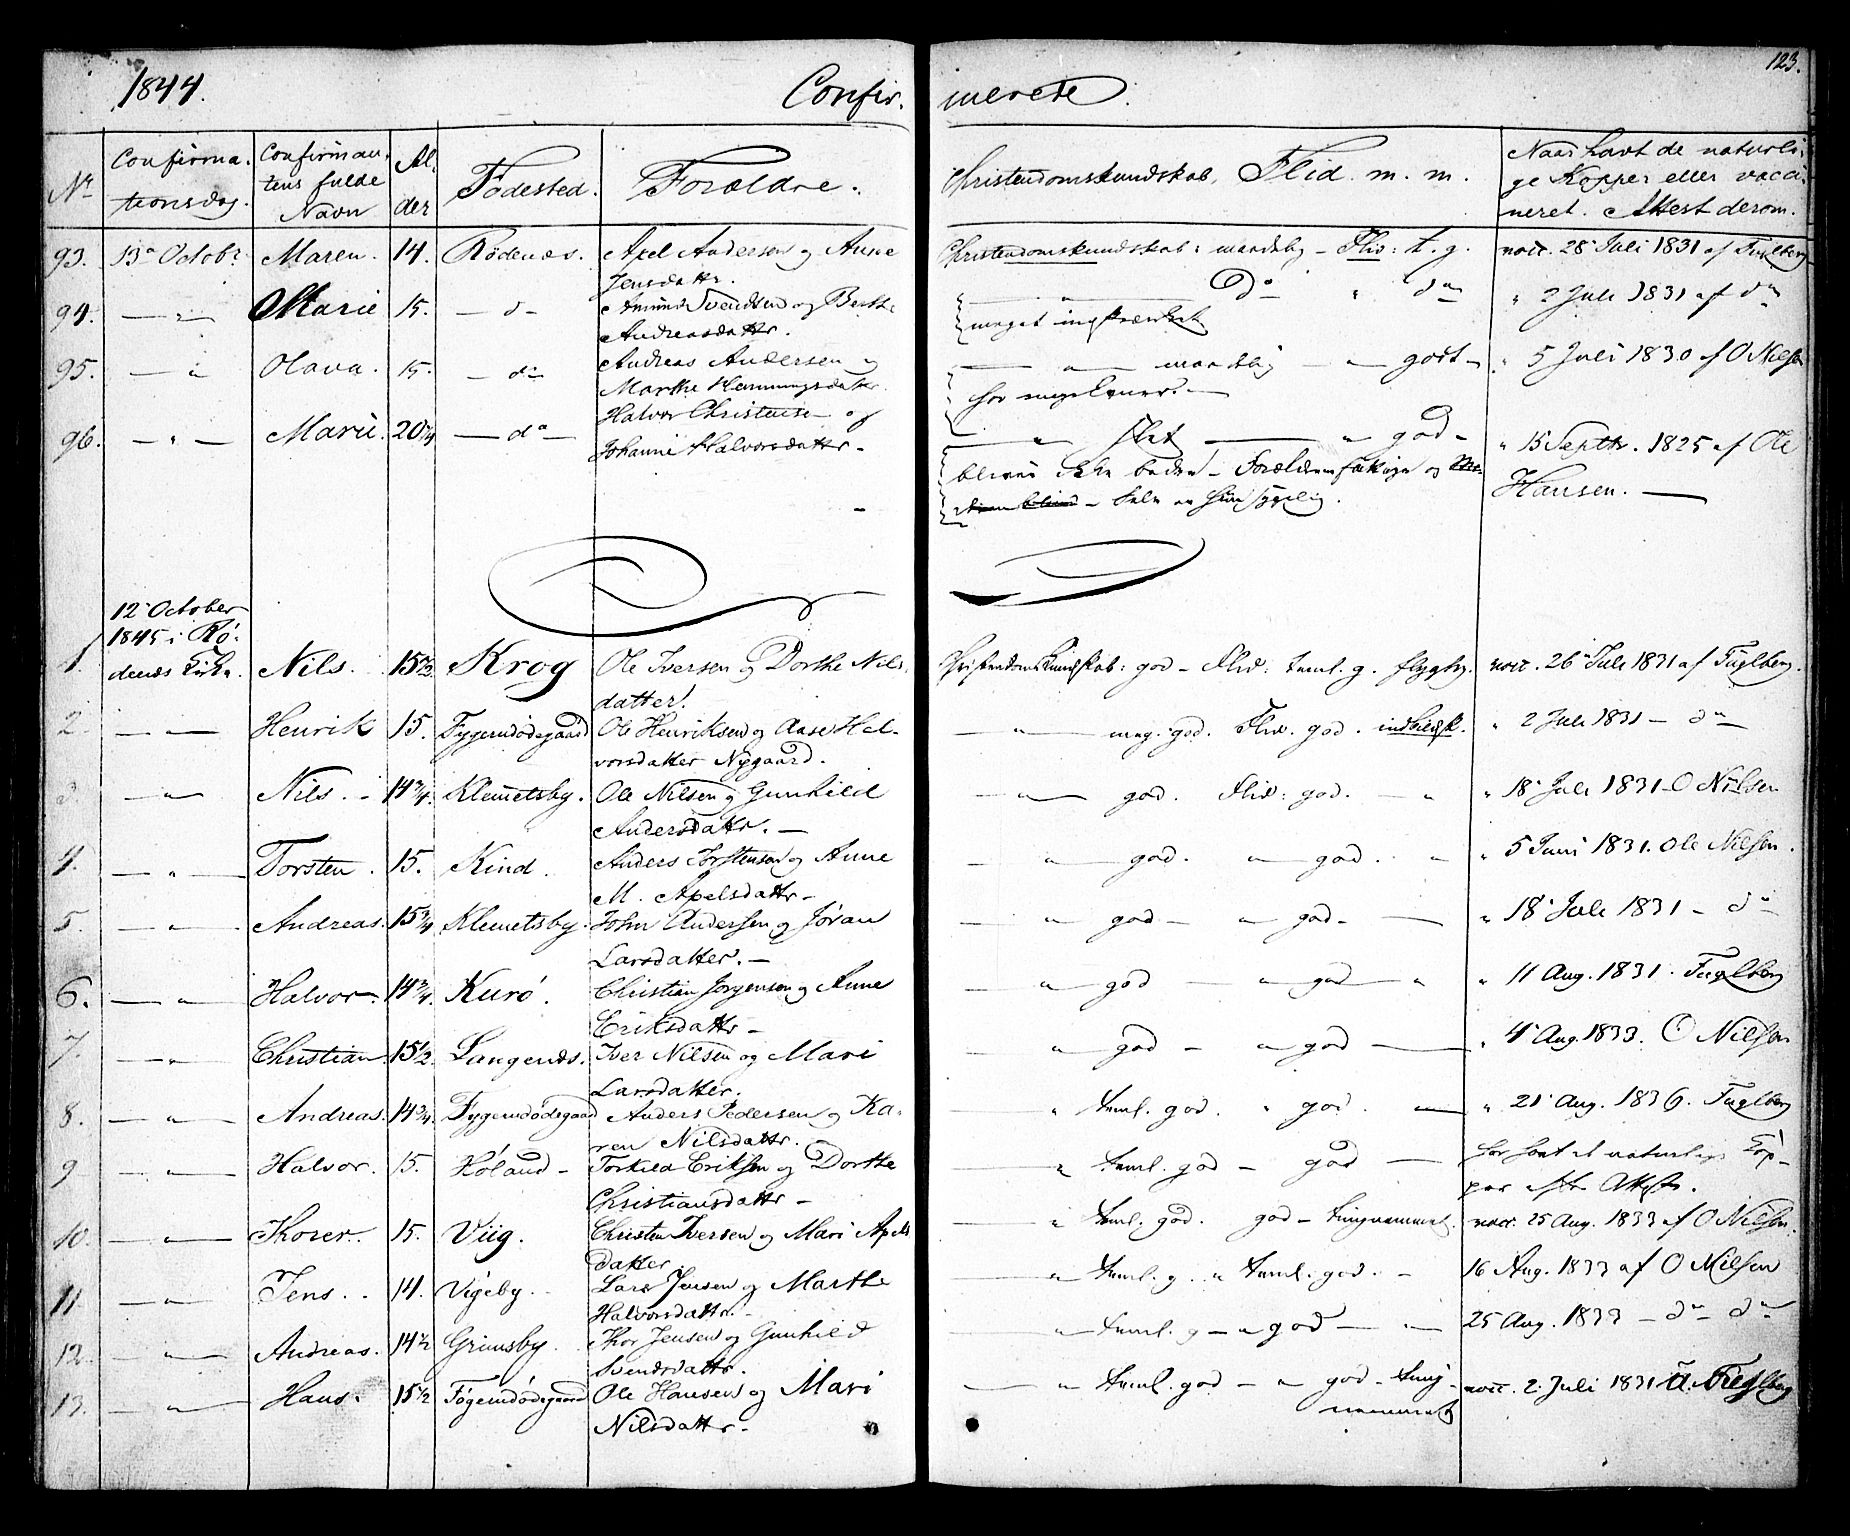 1844. Confir. merede. 123.
No Confirmationsdag. Confirmantens fulde Navn Alder Fødested. Forældre. Christendomskundskab, Flid. m. m. Naar havt de naturlige Kopper eller vaccineret. Attest derom.
93. 13de Octobr Maren. 14. Rødenæs. Axel Andersen og Anne Christendomskundskab: maadelig - Flid: t. g. vacc. 28 Juli 1831 af Fuglberg
Jensdattr.
94. Marie 15. - d - Amund Svendsen og Berthe Do do 2 Juli 1831 af do
Andreasdattr. meget indskrænket
95. Olava. 15. - do Andreas Andersen og maadelig godt 5 Juli 1830 af O Nilsen
Marthe Hemmingsdatter.
96. Marie. 20¼ - do - Halvor Christensen og slet god - 15 Septbr. 1825 af Ole
Johanne Halvorsdattr - Forældrene fattige og Hansen.
12te October
1845 i Rø-
1 denæs Kirke. Nils. 15½ Krog Ole Iversen og Dorthe Nils Christendomskundskab: god - Flid: teml. g. vacc. 26 Juli 1831 af Fuglberg.
datter.
2 Henrik 15. Fygemdødegaard Ole Henriksen og Aase Hal- meg. god. Flid. god. 2 Juli 1831 - do
vorsdatter Nygaard.
3 Nils. 14¾. Klemetsby. Ole Nilsen og Gunhild god. Flid: god. 18 Juli 1831 - O Nilsen
Andersdattr. -
4. Torsten. 15. Kind. Anders Torstensen og Anne god. god. 5 Juni 1831. Ole Nilsen.
M. Axelsdattr -
5. Andreas. 15¾ Klemetsby. John Andersen og Jøran god - god - 18 Juli 1831 - do
Larsdatter. -
6. Halvor. 14¾. Kurø. Christian Jørgensen og Anne god god 11 Aug. 1831. Fuglberg
Eriksdattr -
7. Christian. 15½. Langenæs. Iver Nilsen og Mari god - god 4 Aug. 1833. O Nilsen
Larsdatter.
8. Andreas. 14¾. Fygemdødegaard Anders Pedersen og Ka- teml. god. god. 21 Aug. 1836. Fuglberg
ren Nilsdattr.
9 Halvor. 15. Køland - Torkild Eriksen og Dorthe teml. god - god har havt de naturlige Kop-
Christiansdattr - per efter Attest.
10. Thorer. 15. Viig. Christen Iversen og Mari Axels teml. god. god - vacc. 25 Aug. 1833 af O Nilsen.
datter
11 Jens. 14. Vigeby. Lars Jensen og Marthe teml. g. teml. god. - 16 Aug. 1833 af O Nilsen
Halvorsdattr. -
12. Andreas. 14½ Grimsby. Thor Jensen og Gunhild teml. g - god 25 Aug. 1833 - do do
Svendsdattr.
13. Hans. 15½ Føgemdødegaard Ole Hansen og Mari teml. god - god - vacc. 2 Juli 1831 Fuglberg
Nilsdattr.